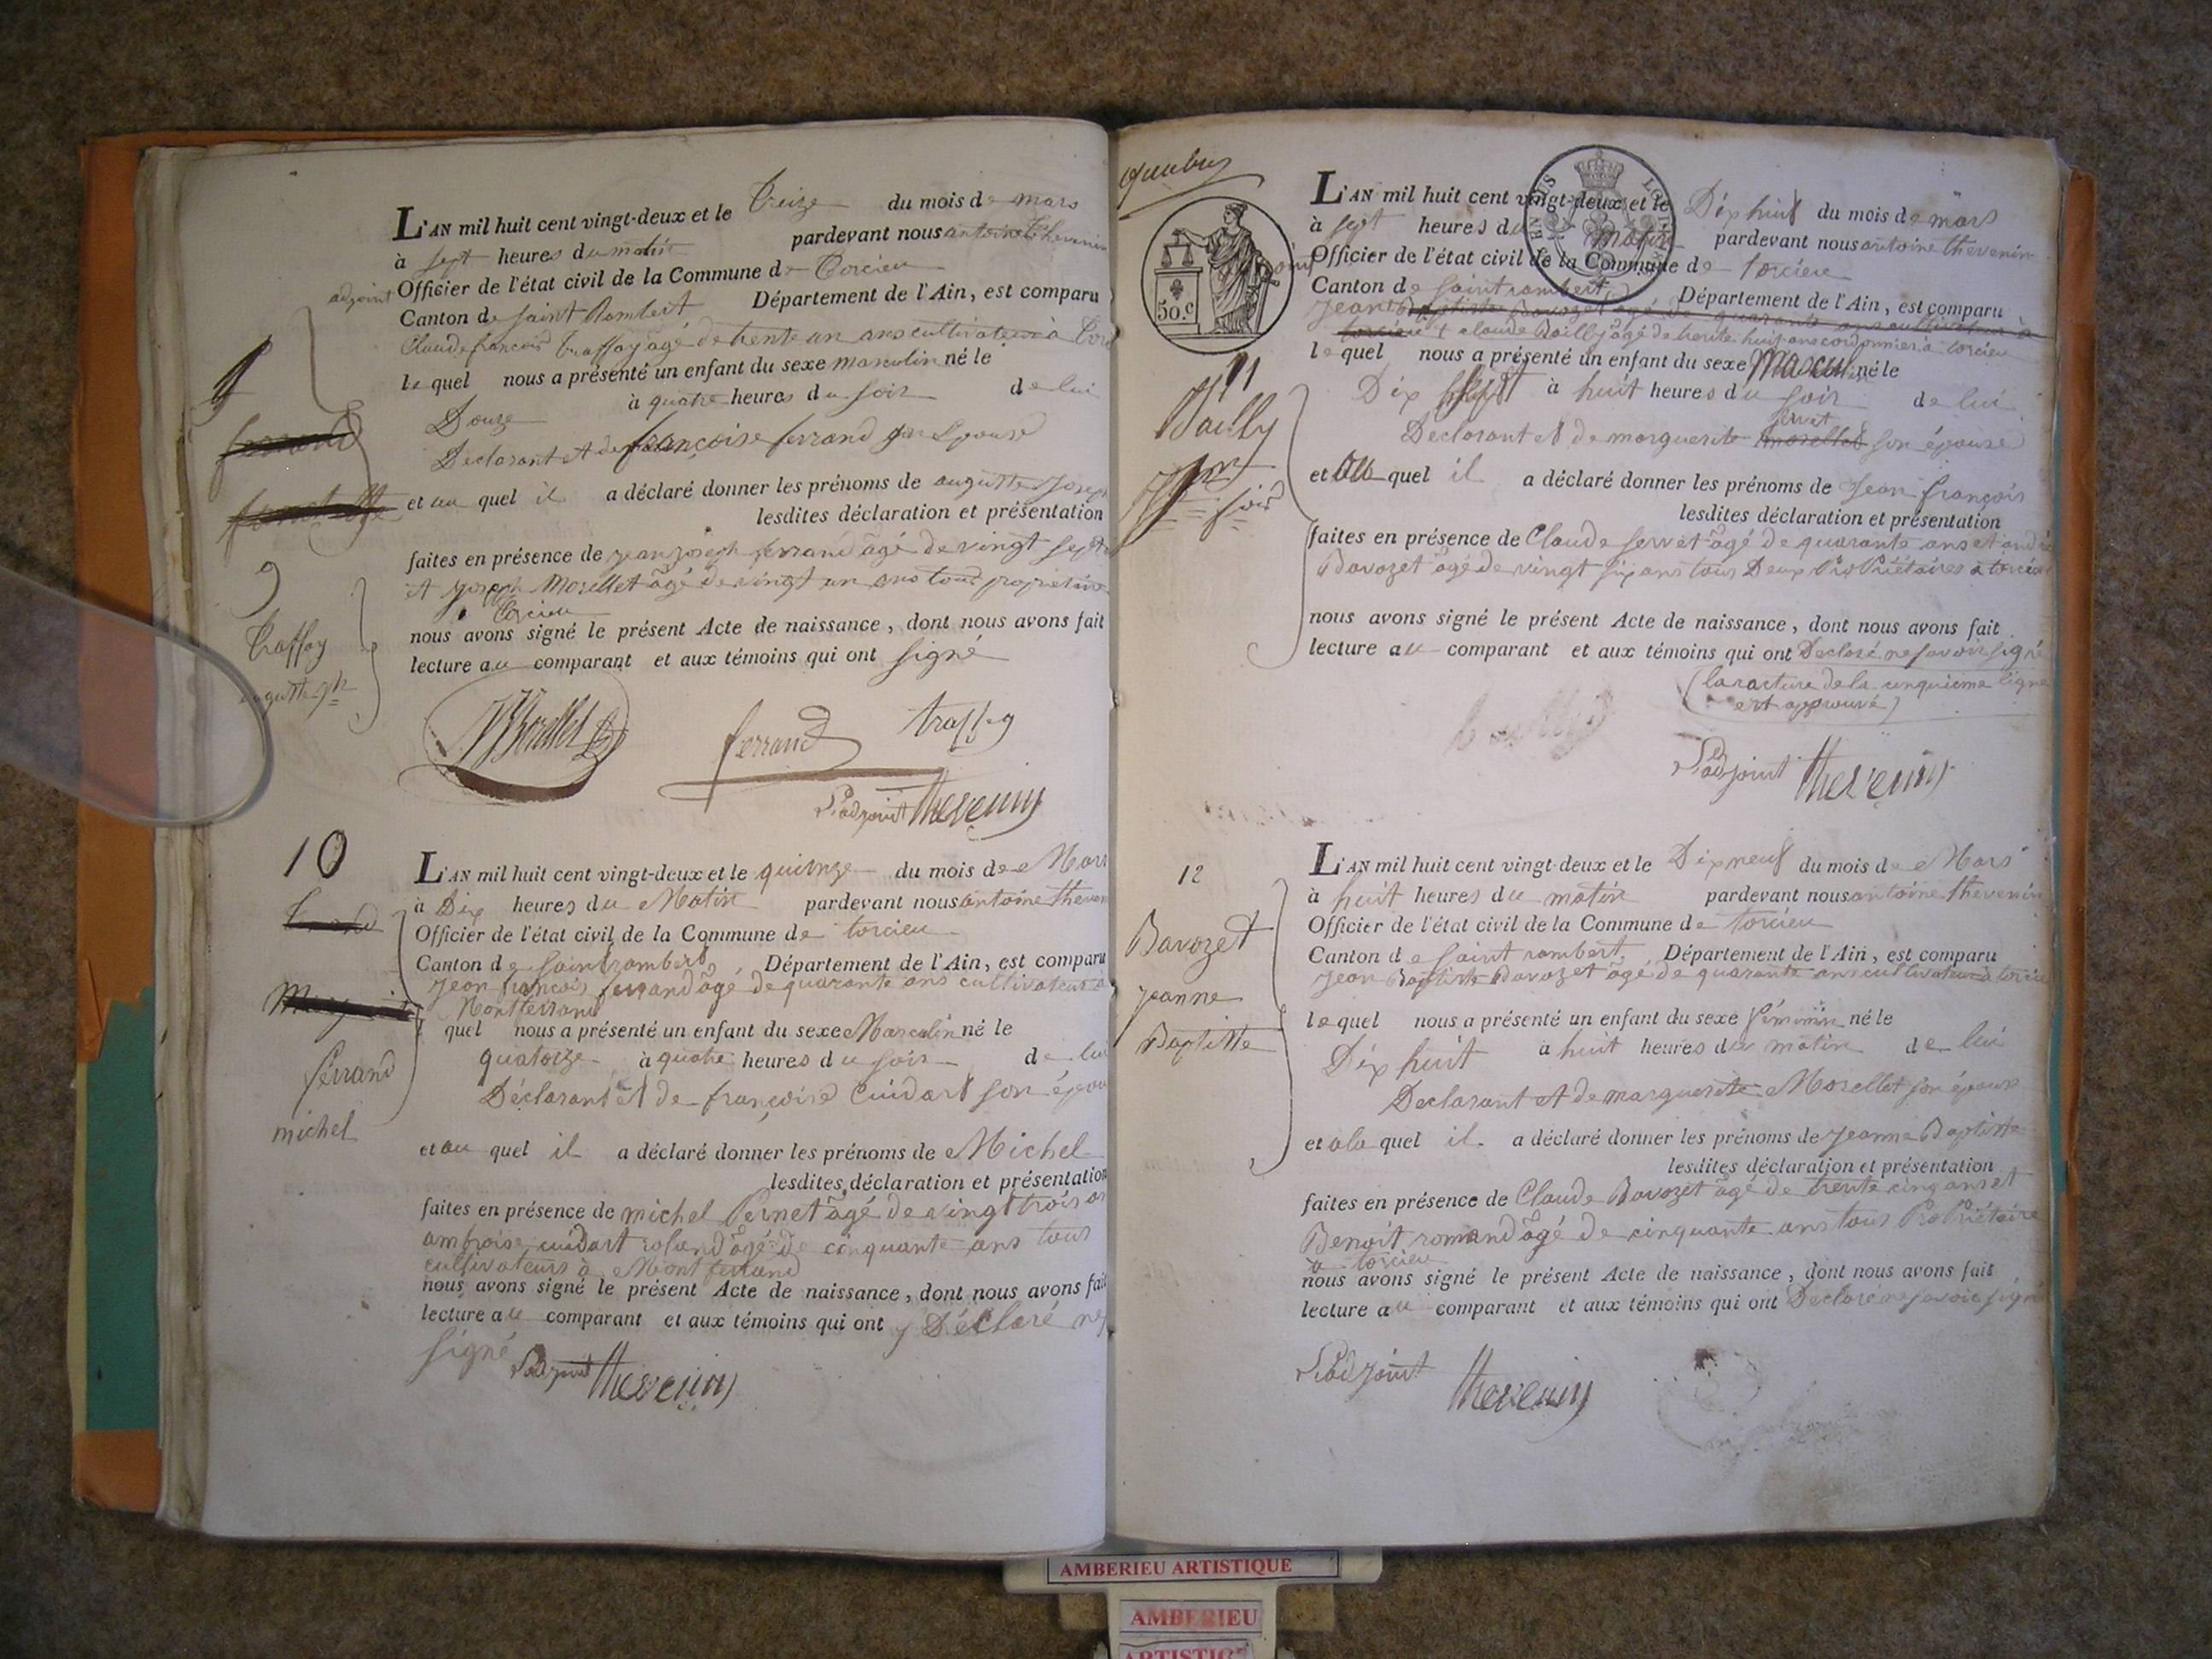 L'AN mil huit cent vingt-deux et le Treize du mois de mars
à sept heures du matin pardevant nous antoine thevenin
adjoint Officier de l'état civil de la Commune de Torcieu
Canton de Saint Rambert Département de l'Ain, est comparu
Claude françois traffay âgé de trente un ans cultivateur à
le quel nous a présenté un enfant du sexe masculin né le
Douze à quatre heures du soir de lui
Declarant et de françoise ferrand son Epouse
et au quel il a déclaré donner les prénoms de augustte Joseph
lesdites déclaration et présentation
faites en présence de jean joseph ferrand âgé de vingt sept
et joseph Morellet âgé de vingt un ans tous proprietaire
Torcieu
nous avons signé le présent Acte de naissance, dont nous avons fait
lecture au comparant et aux témoins qui ont signé
9
Traffay
augustte jph
ferrand
L'adjoint thevenin
10
L'AN mil huit cent vingt-deux et le quinze du mois de Mars
à Dix heures du Matin pardevant nous antoine theven
Officier de l'état civil de la Commune de torcieu
Canton de Saint rambert Département de l'Ain, est comparu
Jean françois ferrand âgé de quarante ans cultivateur à
Montferrand
quel nous a présenté un enfant du sexe Masculin né le
quatorze à quatre heures du soir de lui
Déclarant et de françoise Cuidart son épou
et au quel il a déclaré donner les prénoms de Michel
lesdites déclaration et présentation
faites en présence de michel Pernet âgé de vingt trois an
ambroise cuidart âgé de cinquante ans tous
cultivateurs à Mont ferrand
nous avons signé le présent Acte de naissance, dont nous avons fait
lecture au comparant et aux témoins qui ont Déclaré
signé L'adjoint thevenin
ferrand
michel
50.c
L'AN mil huit cent vingt-deux et le Dix huit du mois de mars
à sept heures du matin pardevant nous antoine thevenin
Officier de l'état civil de la Commune de torcieu
Canton de Saint rambert Département de l'Ain, est comparu
Jean Baptiste Bavozet âgé de quarante ans cultivateur à
torcieu claude Bailly âgé de trente huit ans cordonnier à torcieu
le quel nous a présenté un enfant du sexe Masculin né le
Dix sept à huit heures du soir de lui
servet
Declarant et de marguerite morellet son épouse
et au quel il a déclaré donner les prénoms de Jean françois
lesdites déclaration et présentation
faites en présence de Claude servet âgé de quarante ans et andré
Bavozet âgé de vingt six ans tous Deux Propriétaires à torcieu
nous avons signé le présent Acte de naissance, dont nous avons fait
lecture au comparant et aux témoins qui ont Declaré ne savoir signé
(la racture de la cinquieme ligne
est approuvé)
L'adjoint thevenin
11
Bailly
12
Bavozet
jeanne
Baptiste
L'AN mil huit cent vingt-deux et le Dix neuf du mois de Mars
à huit heures du matin pardevant nous antoine thevenin
Officier de l'état civil de la Commune de torcieu
Canton de Saint rambert, Département de l'Ain, est comparu
Jean Baptiste Bavozet âgé de quarante ans cultivateur à torcieu
le quel nous a présenté un enfant du sexe féminin né le
Dix huit à huit heures du matin de lui
Declarant et de marguerite Morellet son épouse
et a la quel il a déclaré donner les prénoms de jeanne Baptiste
lesdites déclaration et présentation
faites en présence de Claude Bavozet âgé de trente cinq ans et
Benoit romand âgé de cinquante ans tous Propriétaire
à torcieu
nous avons signé le présent Acte de naissance, dont nous avons fait
lecture au comparant et aux témoins qui ont Declaré ne savoir signé
L'adjoint thevenin
AMBERIEU ARTISTIQUE
AMBERIEU